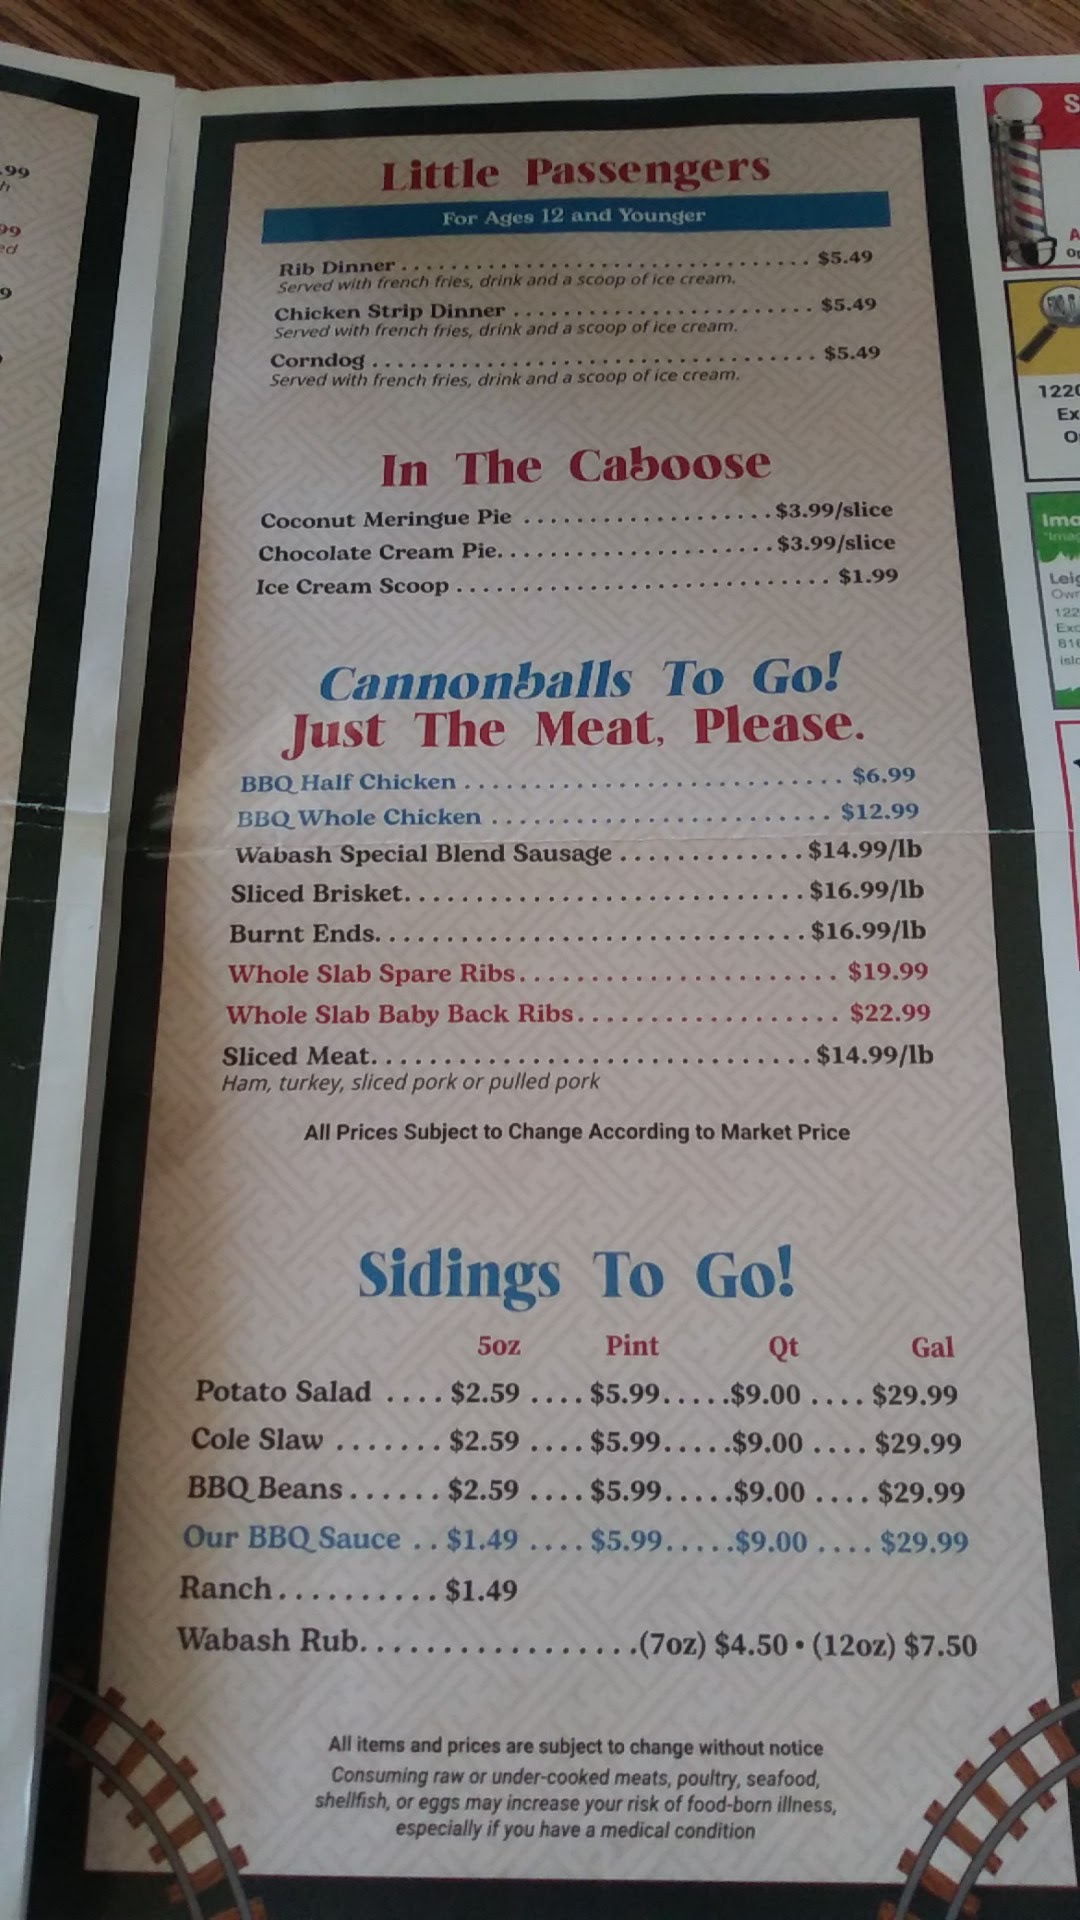 .99
99
ed
9
Little Passengers
For Ages 12 and Younger
Rib Dinner.................................. $5.49
Served with french fries, drink and a scoop of ice cream.
Chicken Strip Dinner ......................... $5.49
Served with french fries, drink and a scoop of ice cream.
Corndog ..................................... $5.49
Served with french fries, drink and a scoop of ice cream.
In The Caboose
Coconut Meringue Pie ................... $3.99/slice
Chocolate Cream Pie..................... $3.99/slice
Ice Cream Scoop ............................. $1.99
Cannonballs To Go!
Just The Meat, Please.
BBQ Half Chicken .............................. $6.99
BBQ Whole Chicken ........................... $12.99
Wabash Special Blend Sausage ............. $14.99/lb
Sliced Brisket............................... $16.99/lb
Burnt Ends................................. $16.99/lb
Whole Slab Spare Ribs........................ $19.99
Whole Slab Baby Back Ribs................... $22.99
Sliced Meat................................. $14.99/lb
Ham, turkey, sliced pork or pulled pork
All Prices Subject to Change According to Market Price
Sidings To Go!
5oz Pint Qt Gal
Potato Salad .... $2.59 .... $5.99.....$9.00 .... $29.99
Cole Slaw ....... $2.59 .... $5.99.....$9.00 .... $29.99
BBQ Beans...... $2.59 .... $5.99.....$9.00 .... $29.99
Our BBQ Sauce .. $1.49 .... $5.99.....$9.00 .... $29.99
Ranch.......... $1.49
Wabash Rub.................(7oz) $4.50 • (12oz) $7.50
All items and prices are subject to change without notice
Consuming raw or under-cooked meats, poultry, seafood,
shellfish, or eggs may increase your risk of food-born illness,
especially if you have a medical condition
S
A
FIND IT
1220
Ex
Ima
"Imag
Leig
Own
122
Exc
816